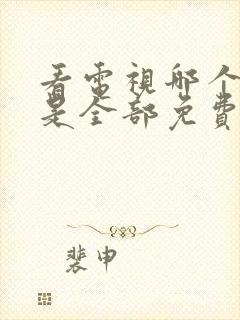 看電視哪个
是全部免費
裴申